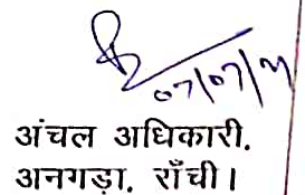 07/07/21
अंचल अधिकारी.
अनगड़ा. राँची।